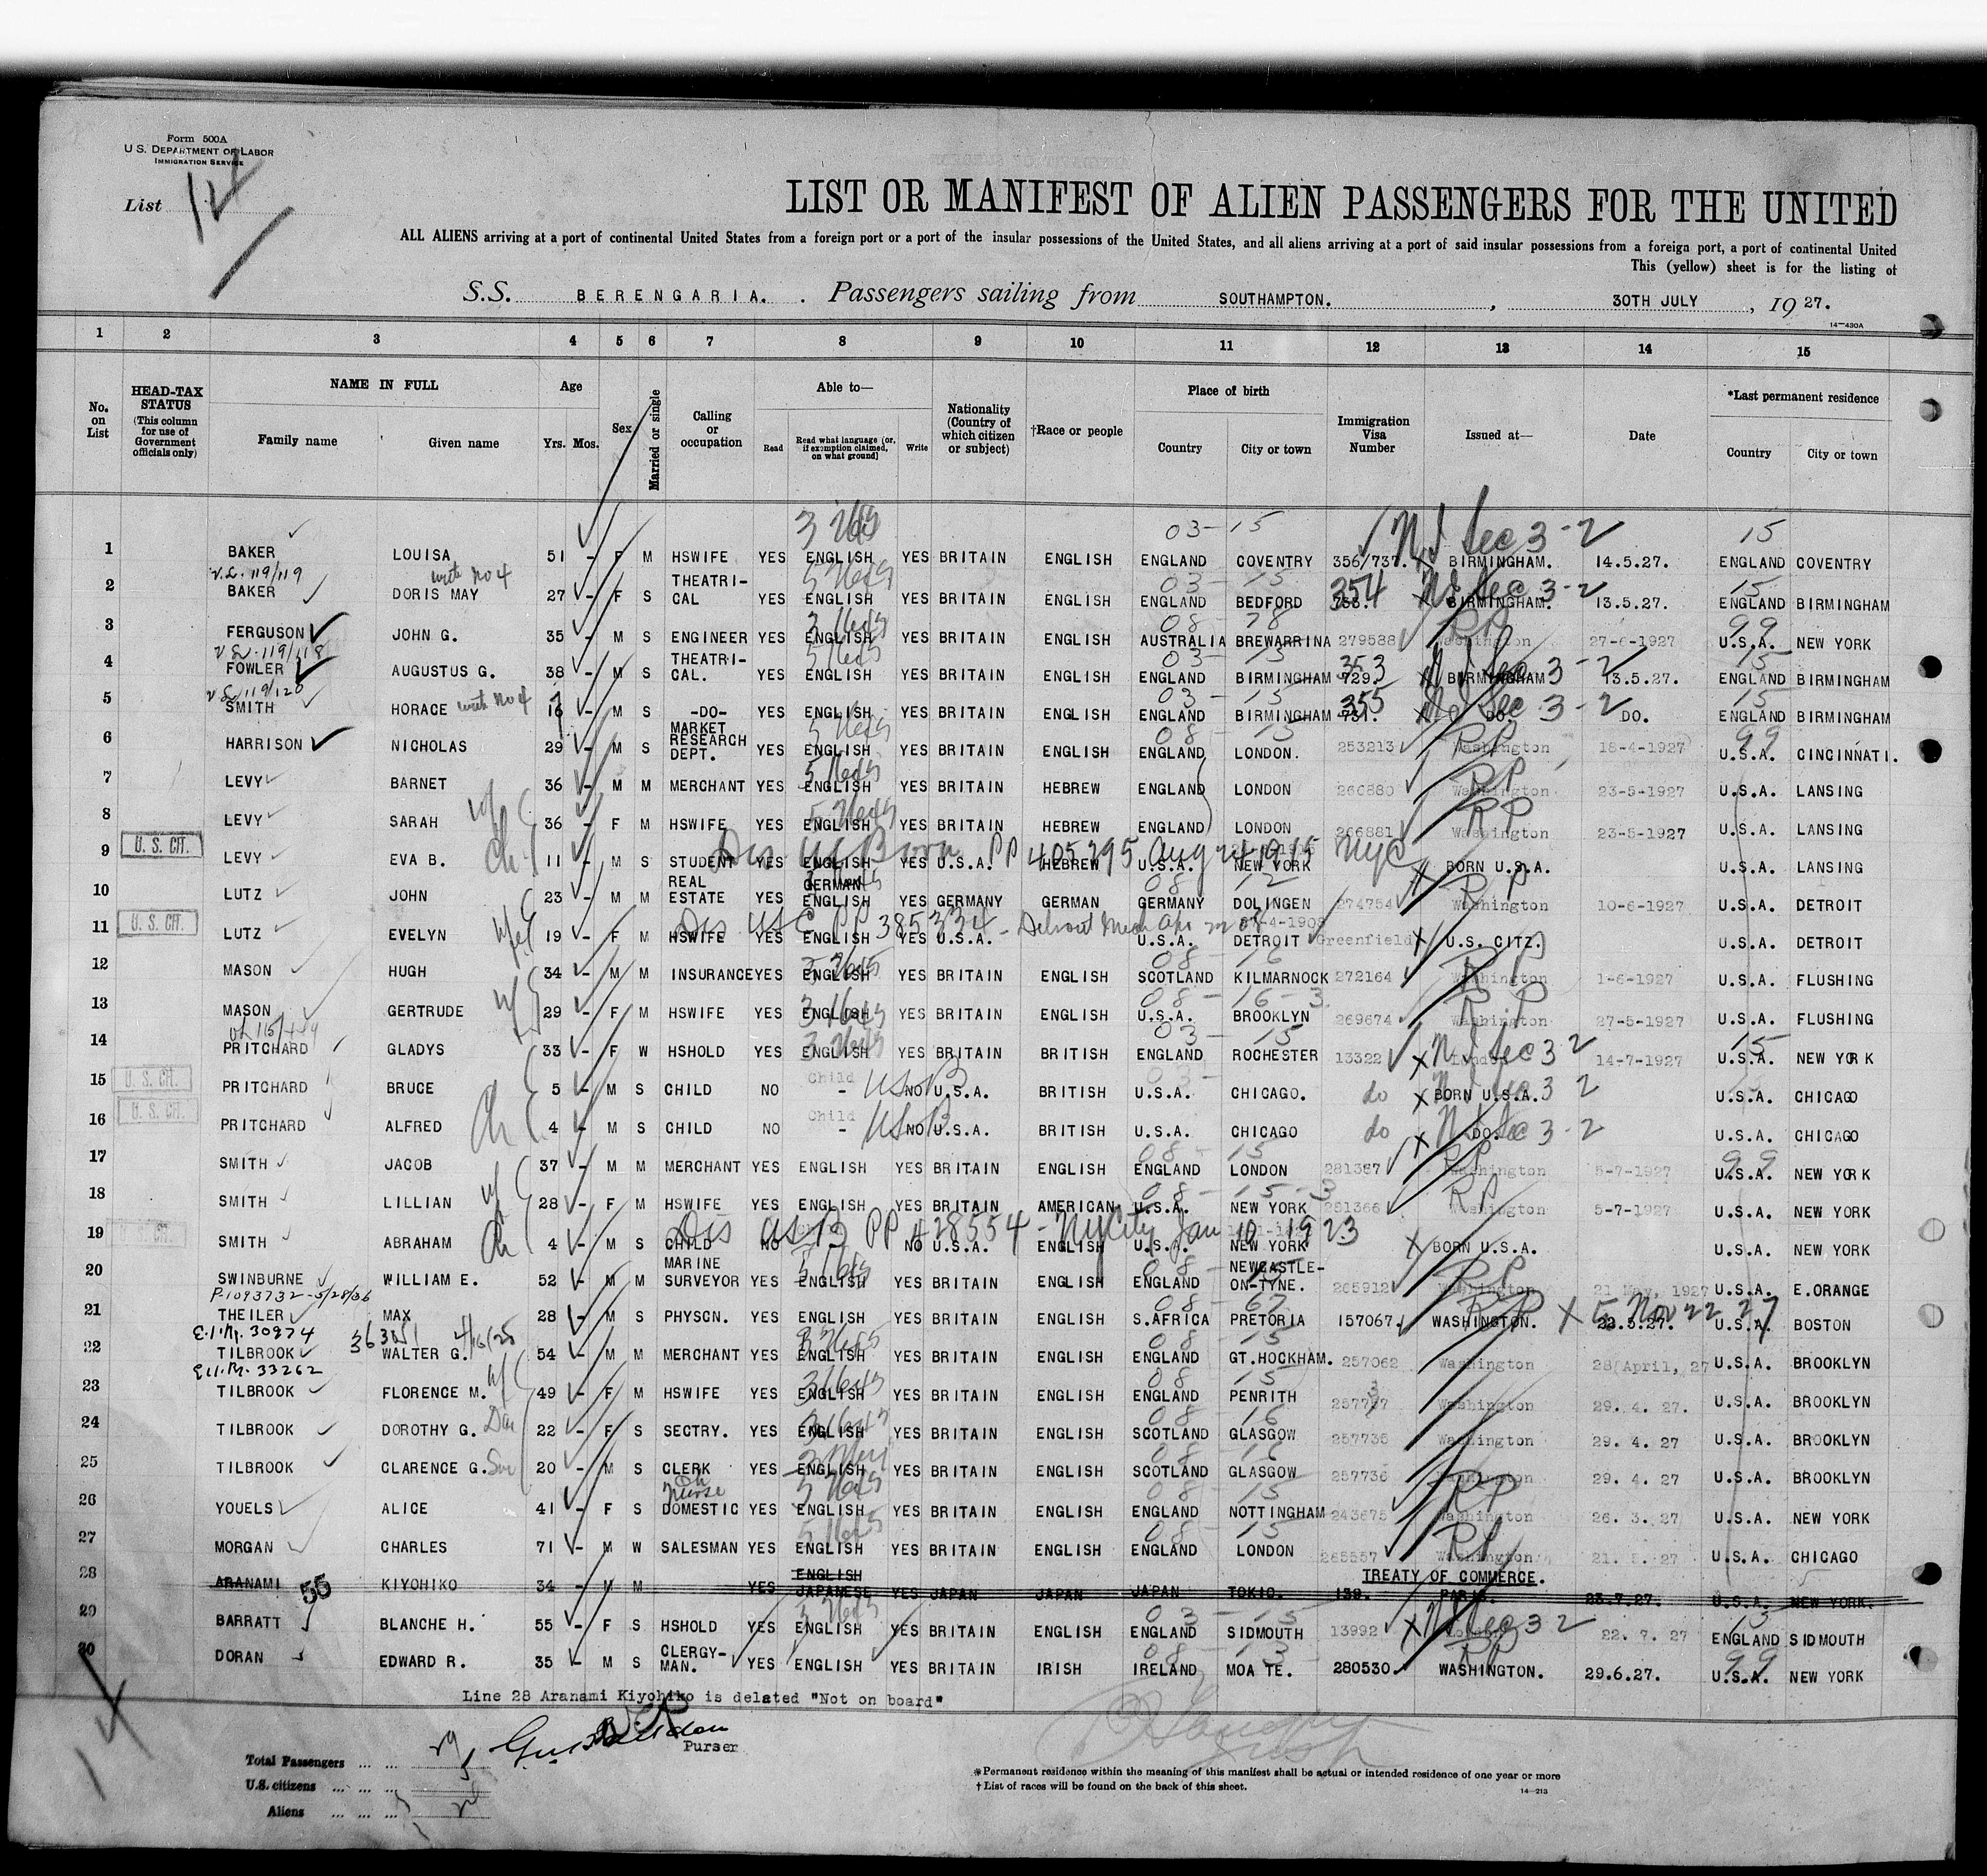 Form 500A
U.S. DEPARTMENT OF LABOR
IMMIGRATION SERVICE
List 14
LIST OR MANIFEST OF ALIEN PASSENGERS FOR THE UNITED
ALL ALIENS arriving at a port of continental United States from a foreign port or a port of the insular possessions of the United States, and all aliens arriving at a port of said insular possessions from a foreign port, a port of continental United
This (yellow) sheet is for the listing of
S.S. BERENGARIA. Passengers sailing from SOUTHAMPTON. , 30TH JULY , 19 27.
14—430A
1 2 3 4 5 6 7 8 9 10 11 12 13 14 15
No. on List
HEAD-TAX STATUS (This column for use of Government officials only)
NAME IN FULL Family name Given name
Age Yrs. Mos.
Sex
Married or single
Calling or occupation
Able to— Read Read what language [or, if exemption claimed, on what ground] Write
Nationality (Country of which citizen or subject)
†Race or people
Place of birth Country City or town
Immigration Visa Number
Issued at—
Date
*Last permanent residence Country City or town
1 BAKER LOUISA 51 - F M HSWIFE YES ENGLISH YES BRITAIN ENGLISH ENGLAND COVENTRY 356/737. BIRMINGHAM. 14.5.27. ENGLAND COVENTRY
03-15 15
2 BAKER DORIS MAY with No 4 27 - F S THEATRI-CAL YES ENGLISH YES BRITAIN ENGLISH ENGLAND BEDFORD 354 BIRMINGHAM. 13.5.27. ENGLAND BIRMINGHAM
119/119
3 FERGUSON JOHN G. 35 - M S ENGINEER YES ENGLISH YES BRITAIN ENGLISH AUSTRALIA BREWARRINA 279588 Washington 27-6-1927 U.S.A. NEW YORK
119/118
4 FOWLER AUGUSTUS G. 38 - M S THEATRI-CAL. YES ENGLISH YES BRITAIN ENGLISH ENGLAND BIRMINGHAM 353 729. BIRMINGHAM 13.5.27. ENGLAND BIRMINGHAM
119/120
5 SMITH HORACE with No 4 16 - M S -DO- YES ENGLISH YES BRITAIN ENGLISH ENGLAND BIRMINGHAM 355 731. DO. DO. ENGLAND BIRMINGHAM
6 HARRISON NICHOLAS 29 - M S MARKET RESEARCH DEPT. YES ENGLISH YES BRITAIN ENGLISH ENGLAND LONDON. 253213 Washington 18-4-1927 U.S.A. CINCINNATI.
7 LEVY BARNET 36 - M M MERCHANT YES ENGLISH YES BRITAIN HEBREW ENGLAND LONDON 266880 Washington 23-5-1927 U.S.A. LANSING
8 LEVY SARAH 36 - F M HSWIFE YES ENGLISH YES BRITAIN HEBREW ENGLAND LONDON 266881 Washington 23-5-1927 U.S.A. LANSING
9 U.S. CIT. LEVY EVA B. 11 - M S STUDENT YES ENGLISH YES U.S.A. HEBREW U.S.A. NEW YORK BORN U.S.A. U.S.A. LANSING
PP 405295 Aug 24 1915 NYC
10 LUTZ JOHN 23 - M M REAL ESTATE YES GERMAN ENGLISH YES GERMANY GERMAN GERMANY DOLINGEN 274754 Washington 10-6-1927 U.S.A. DETROIT
11 U.S. CIT. LUTZ EVELYN 19 - F M HSWIFE YES ENGLISH YES U.S.A. U.S.A. DETROIT Greenfield U.S. CITZ. U.S.A. DETROIT
Dis USC PP 385334 - Detroit Mich
12 MASON HUGH 34 - M M INSURANCE YES ENGLISH YES BRITAIN ENGLISH SCOTLAND KILMARNOCK 272164 Washington 1-6-1927 U.S.A. FLUSHING
13 MASON GERTRUDE 29 - F M HSWIFE YES ENGLISH YES BRITAIN ENGLISH U.S.A. BROOKLYN 269674 Washington 27-5-1927 U.S.A. FLUSHING
14 PRITCHARD GLADYS 33 - F W HSHOLD YES ENGLISH YES BRITAIN BRITISH ENGLAND ROCHESTER 13322 London 14-7-1927 U.S.A. NEW YORK
15 U.S. CIT. PRITCHARD BRUCE 5 - M S CHILD NO Child - NO U.S.A. BRITISH U.S.A. CHICAGO. do BORN U.S.A. U.S.A. CHICAGO
16 U.S. CIT. PRITCHARD ALFRED 4 - M S CHILD NO Child - NO U.S.A. BRITISH U.S.A. CHICAGO do DO. U.S.A. CHICAGO
17 SMITH JACOB 37 - M M MERCHANT YES ENGLISH YES BRITAIN ENGLISH ENGLAND LONDON 281367 Washington 5-7-1927 U.S.A. NEW YORK
18 SMITH LILLIAN 28 - F M HSWIFE YES ENGLISH YES BRITAIN AMERICAN U.S.A. NEW YORK 281366 Washington 5-7-1927 U.S.A. NEW YORK
19 U.S. CIT. SMITH ABRAHAM 4 - M S CHILD NO - NO U.S.A. ENGLISH U.S.A. NEW YORK BORN U.S.A. U.S.A. NEW YORK
Dis USB PP 428554 - NYCity Jan 10 1923
20 SWINBURNE WILLIAM E. 52 - M M MARINE SURVEYOR YES ENGLISH YES BRITAIN ENGLISH ENGLAND NEWCASTLE-ON-TYNE. 265912 Washington 21 May, 1927 U.S.A. E.ORANGE
P-1093732-5/28/36
21 THEILER MAX 28 - M S PHYSCN. YES ENGLISH YES BRITAIN ENGLISH S.AFRICA PRETORIA 157067 WASHINGTON. U.S.A. BOSTON
Nov 22 27
30974
22 TILBROOK WALTER G. 54 - M M MERCHANT YES ENGLISH YES BRITAIN ENGLISH ENGLAND GT.HOCKHAM. 257062 Washington 28 April, 27 U.S.A. BROOKLYN
33262
23 TILBROOK FLORENCE M. 49 - F M HSWIFE YES ENGLISH YES BRITAIN ENGLISH ENGLAND PENRITH Washington 29. 4. 27. U.S.A. BROOKLYN
24 TILBROOK DOROTHY G. Dau 22 - F S SECTRY. YES ENGLISH YES BRITAIN ENGLISH SCOTLAND GLASGOW 257735 Washington 29. 4. 27 U.S.A. BROOKLYN
25 TILBROOK CLARENCE G. Son 20 - M S CLERK YES ENGLISH YES BRITAIN ENGLISH SCOTLAND GLASGOW 257736 Washington 29. 4. 27 U.S.A. BROOKLYN
26 YOUELS ALICE 41 - F S Nurse DOMESTIC YES ENGLISH YES BRITAIN ENGLISH ENGLAND NOTTINGHAM 243675 Washington 26. 3. 27 U.S.A. NEW YORK
27 MORGAN CHARLES 71 - M W SALESMAN YES ENGLISH YES BRITAIN ENGLISH ENGLAND LONDON 265557 Washington 21. 5. 27 U.S.A. CHICAGO
28 ARANAMI 55 KIYOHIKO 34 - M M YES ENGLISH JAPANESE YES JAPAN JAPAN JAPAN TOKIO. 139. TREATY OF COMMERCE. PARIS. 23.7.27. U.S.A. NEW YORK.
29 BARRATT BLANCHE H. 55 - F S HSHOLD YES ENGLISH YES BRITAIN ENGLISH ENGLAND SIDMOUTH 13992 London 22. 7. 27 ENGLAND SIDMOUTH
30 DORAN EDWARD R. 35 - M S CLERGY-MAN. YES ENGLISH YES BRITAIN IRISH IRELAND MOA TE. 280530 WASHINGTON. 29.6.27. U.S.A. NEW YORK
Line 28 Aranami Kiyohiko is delated "Not on board"
Purser
14
Total Passengers
U.S. citizens
Aliens
*Permanent residence within the meaning of this manifest shall be actual or intended residence of one year or more
†List of races will be found on the back of this sheet.
14—213